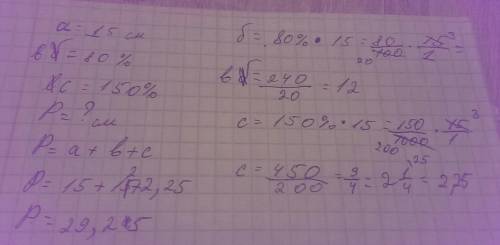 a = 15 см
в = 80 %
с = 150%
P = ? см
P = a + b + c
P = 15 + 12 + 2,25
P = 29,25
б = 80% • 15 = 80/100 · 15/1 =
20 3
в = 240/20 = 12
с = 150% • 15 = 150/1000 · 15/1
200 3
с = 450/200 = 9/4 = 2 1/4 = 2,25